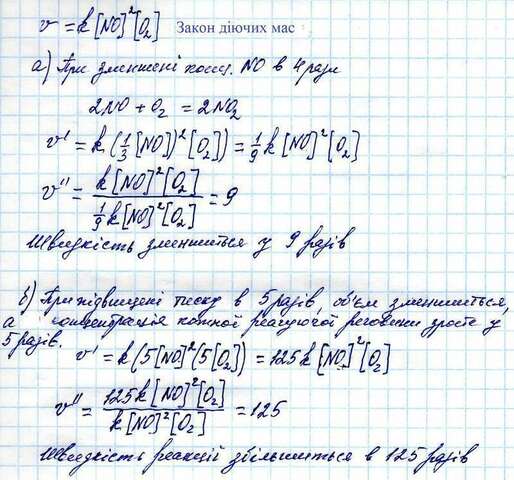 v = k[NO]²[O₂] Закон діючих мас
а) При зменшені конц. NO в 4 рази
2NO + O₂ = 2NO₂
v' = k(1/3[NO])²[O₂]) = 1/9 k[NO]²[O₂]
v'' = k[NO]²[O₂] / 1/9 k[NO]²[O₂] = 9
Швидкість зменшиться у 9 разів
б) При підвищені тиску в 5 разів, об'єм зменшиться,
а концентрація кожної реагуючої речовини зросте у
5 разів.
v' = k(5[NO]²(5[O₂]) = 125k[NO]²[O₂]
v'' = 125k[NO]²[O₂] / k[NO]²[O₂] = 125
Швидкість реакції збільшиться в 125 разів